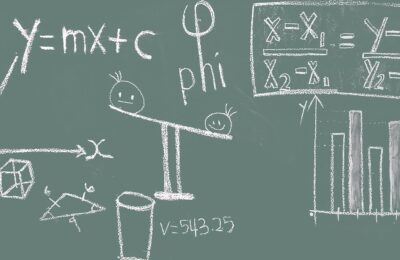 y=mx+c
φ
phi
x-x₁ = y-
x₂-x₁ y₂-
y
x
6 6
9
v=543.25